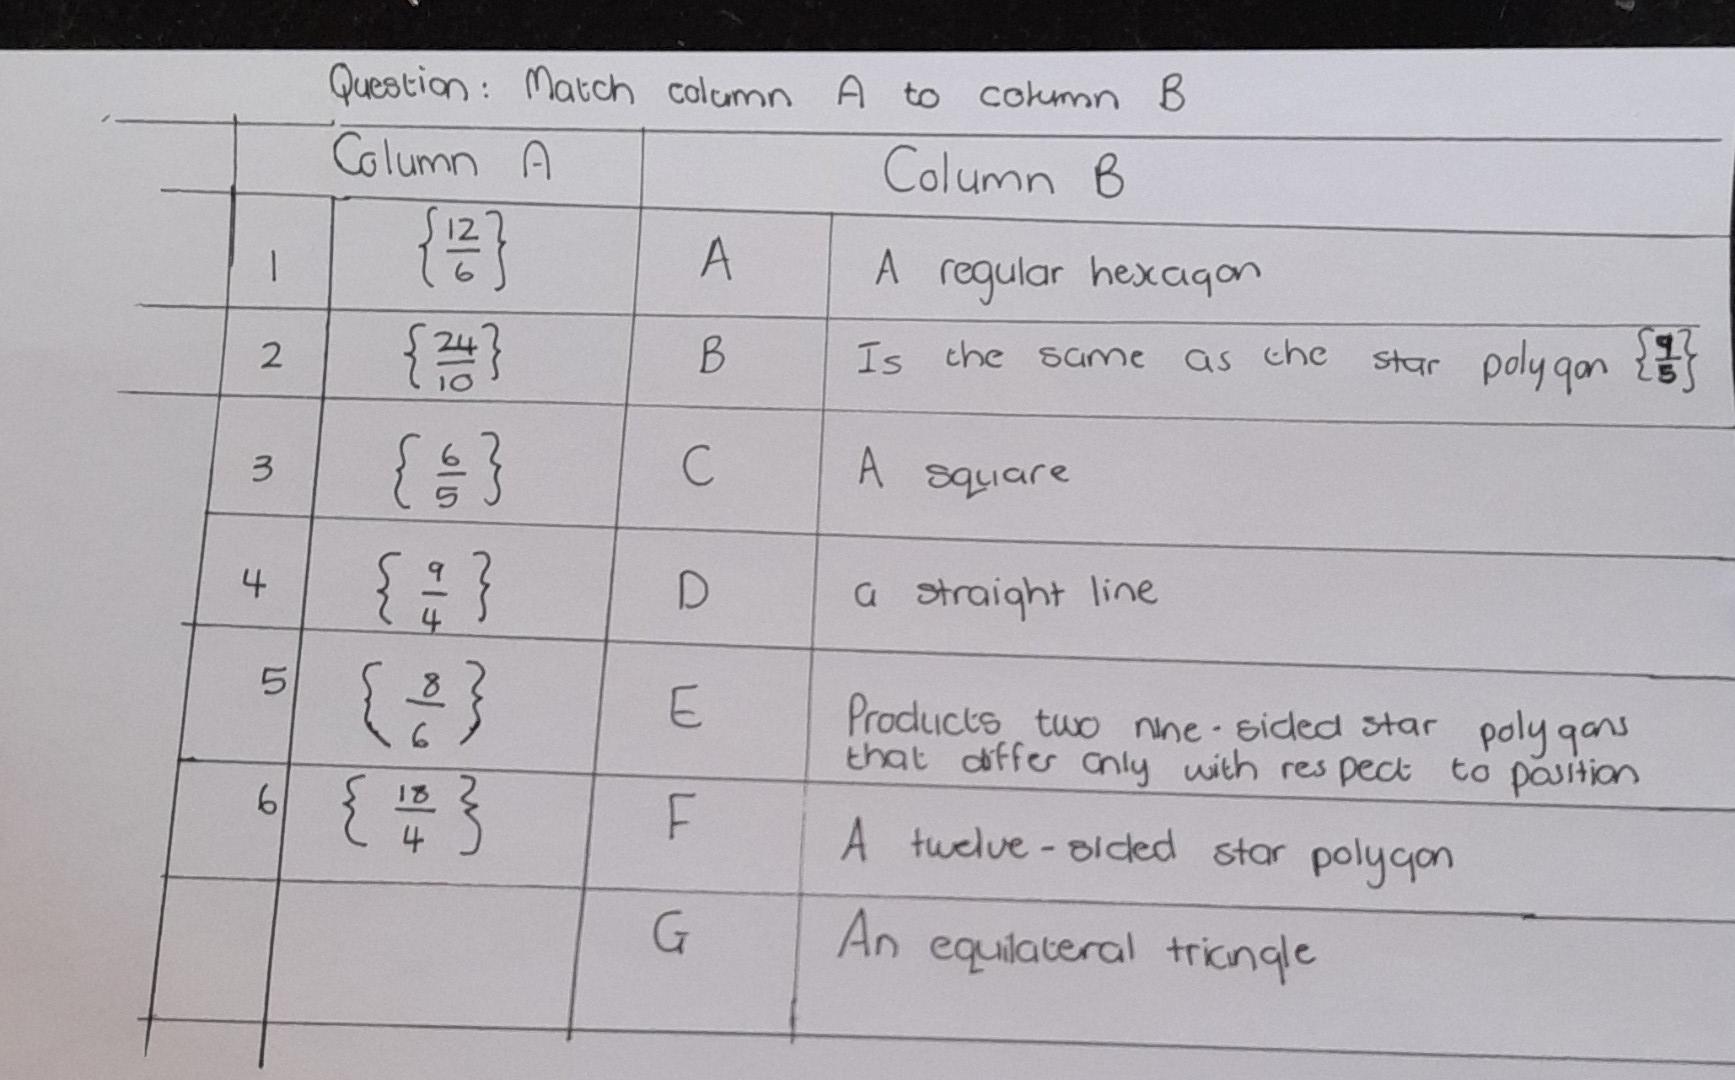 Question: Match column A to column B
Column A Column B
1 {12/6} A A regular hexagon
2 {24/10} B Is the same as the star polygon {9/5}
3 {6/5} C A square
4 {9/4} D a straight line
5 {8/6} E Products two nine-sided star polygons
that differ only with respect to position
6 {18/4} F A twelve-sided star polygon
G An equilateral triangle